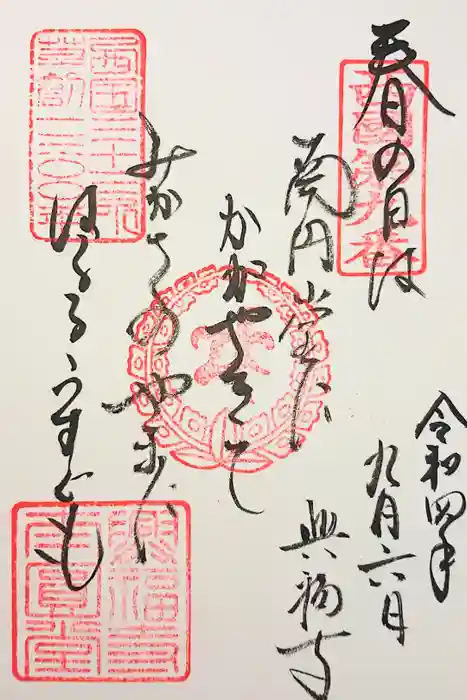 春の日は
南円堂に
かがやきて
みかさのやまに
はるるうすぐも
令和四年
九月六日
興福寺
西国第九番
西国三十三所
草創一三〇〇年
興福寺
南円堂